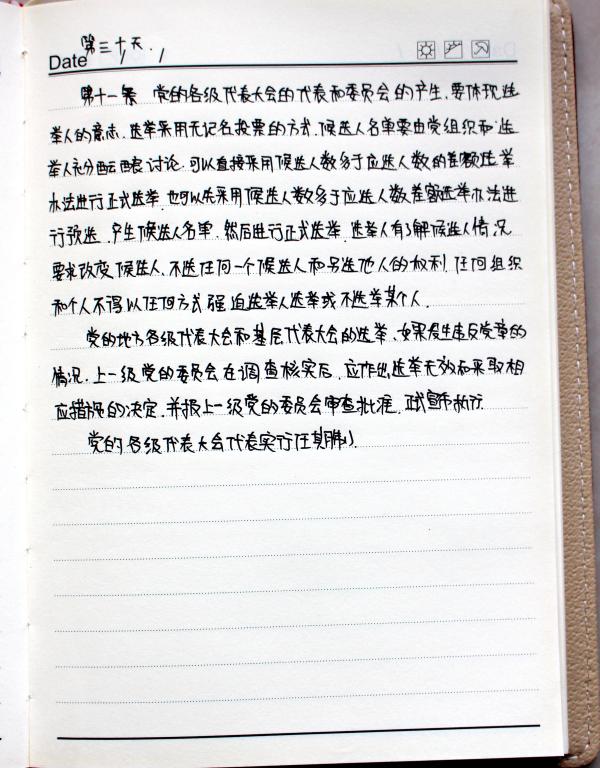 第三十天.
Date / /
第十一条 党的各级代表大会的代表和委员会的产生,要体现选
举人的意志.选举采用无记名投票的方式.候选人名单要由党组织和选
举人充分酝酿讨论.可以直接采用候选人数多于应选人数的差额选举
办法进行正式选举.也可以先采用候选人数多于应选人数差额选举办法进
行预选.产生候选人名单.然后进行正式选举.选举人有了解候选人情况
要求改变候选人、不选任何一个候选人和另选他人的权利.任何组织
和个人不得以任何方式强迫选举人选举或不选举某个人.
党的地方各级代表大会和基层代表大会的选举、如果发生违反党章的
情况.上一级党的委员会在调查核实后、应作出选举无效和采取相
应措施的决定.并报上一级党的委员会审查批准.正式宣布执行.
党的各级代表大会代表实行任期制.